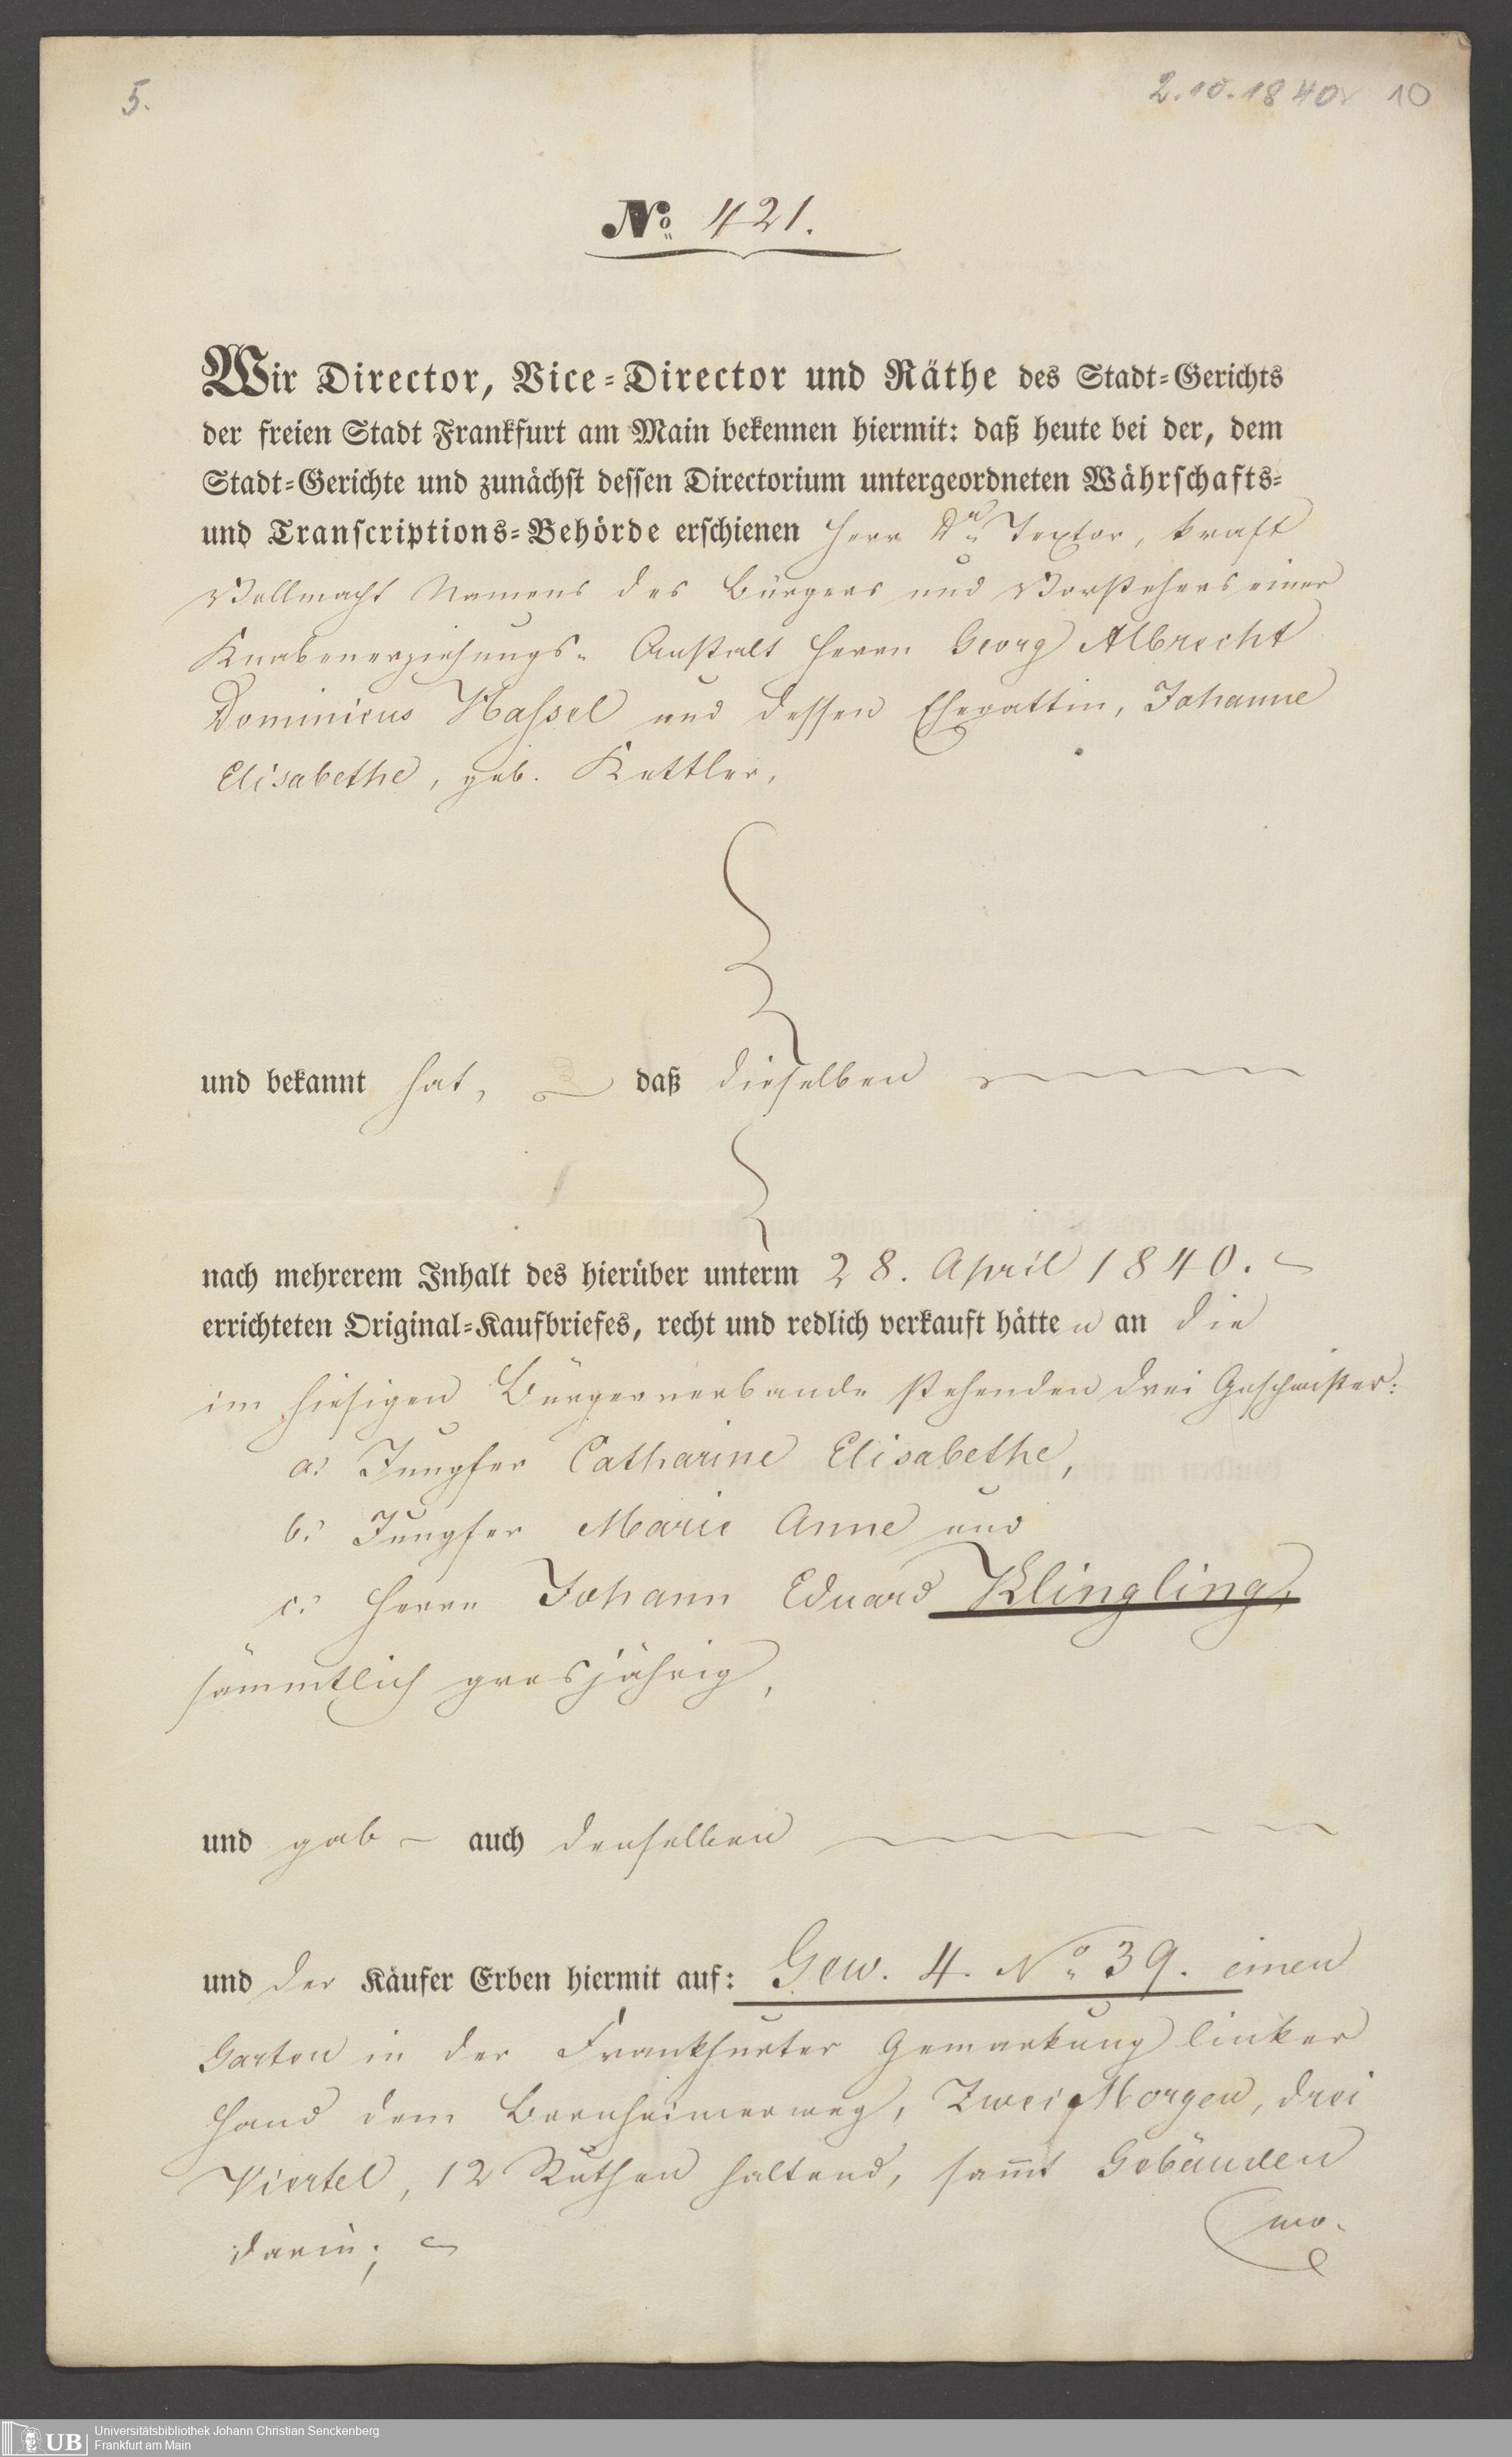 5.
2.10.1840 10
No 421.
Wir Director, Vice-Director und Räthe des Stadt-Gerichts
der freien Stadt Frankfurt am Main bekennen hiermit: daß heute bei der, dem
Stadt-Gerichte und zunächst dessen Directorium untergeordneten Währschafts-
und Transcriptions-Behörde erschienen Herr Dr Textor, kraft
Vollmacht Namens des Bürgers und Vorstehers einer
Knabenerziehungs- Anstalt Herrn Georg Albrecht
Dominicus Hassel und dessen Ehegattin, Johanne
Elisabethe, geb. Kettler,
und bekannt hat, daß dieselben
nach mehrerem Inhalt des hierüber unterm 28. April 1840.
errichteten Original-Kaufbriefes, recht und redlich verkauft hätten an die
im hiesigen Bürgerverbande stehenden drei Geschwister:
a: Jungfer Catharine Elisabethe,
b: Jungfer Marie Anne und
c: Herrn Johann Eduard Klingling,
sämmtlich grosjährig,
und gab auch denselben
und der Käufer Erben hiermit auf: Gew. 4. No 39. einen
Garten in der Frankfurter Gemarkung linker
Hand dem Bornheimerweg, Zwei Morgen, drei
Viertel, 12 Ruthen haltend, sam̅t Gebäuden
darin;
wo-
UB
Universitätsbibliothek Johann Christian Senckenberg
Frankfurt am Main